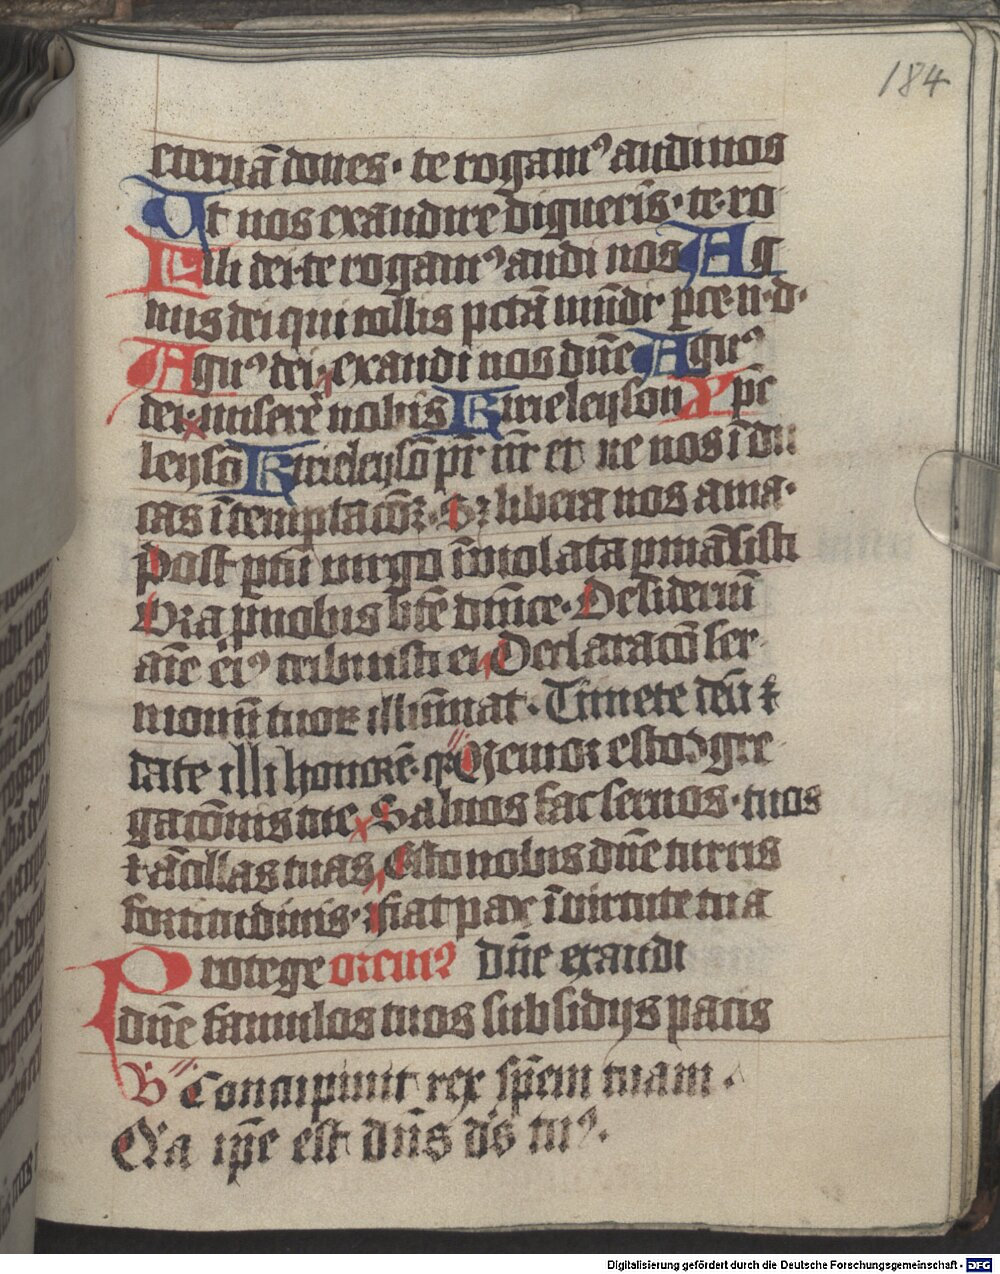 184
eternā dones · te rogamꝰ audi nos
Ut nos exaudire digneris · te ro
Fili dei · te rogamꝰ audi nos Ag
nus dei qui tollis pctā mūdi · pce · n · d ·
Agnꝰ dei · exaudi nos dn̄e Agnꝰ
dei · miserē nobis Kirieleyson Xp̄e
leysō Kirieleysō pr̄ nr̄ et ne nos īdu
cas ī temptacōꝫ · Sꝫ libera nos a ma ·
Post ptū virgo īviolata pmāsisti
Ora pnobis bt̄e dn̄ice · Desideriū
aīe eiꝰ tribuisti ei Declaracō ser
monū tuoꝝ illūinat · Timete deū ⁊
date illi honorē · qꝛ Memor esto ↄgre
gacōnis tue Saluos fac seruos · tuos
⁊ ācillas tuas Esto nobis dn̄e turris
fortitudinis · fiat pax ī virtute tua
Protege oremꝰ dn̄e exaudi
dn̄e famulos tuos subsidijs pacis
Concupiuit rex sp̄em tuam ·
Qīa ip̄e est dn̄s ds̄ tuꝰ ·
Digitalisierung gefördert durch die Deutsche Forschungsgemeinschaft - DFG